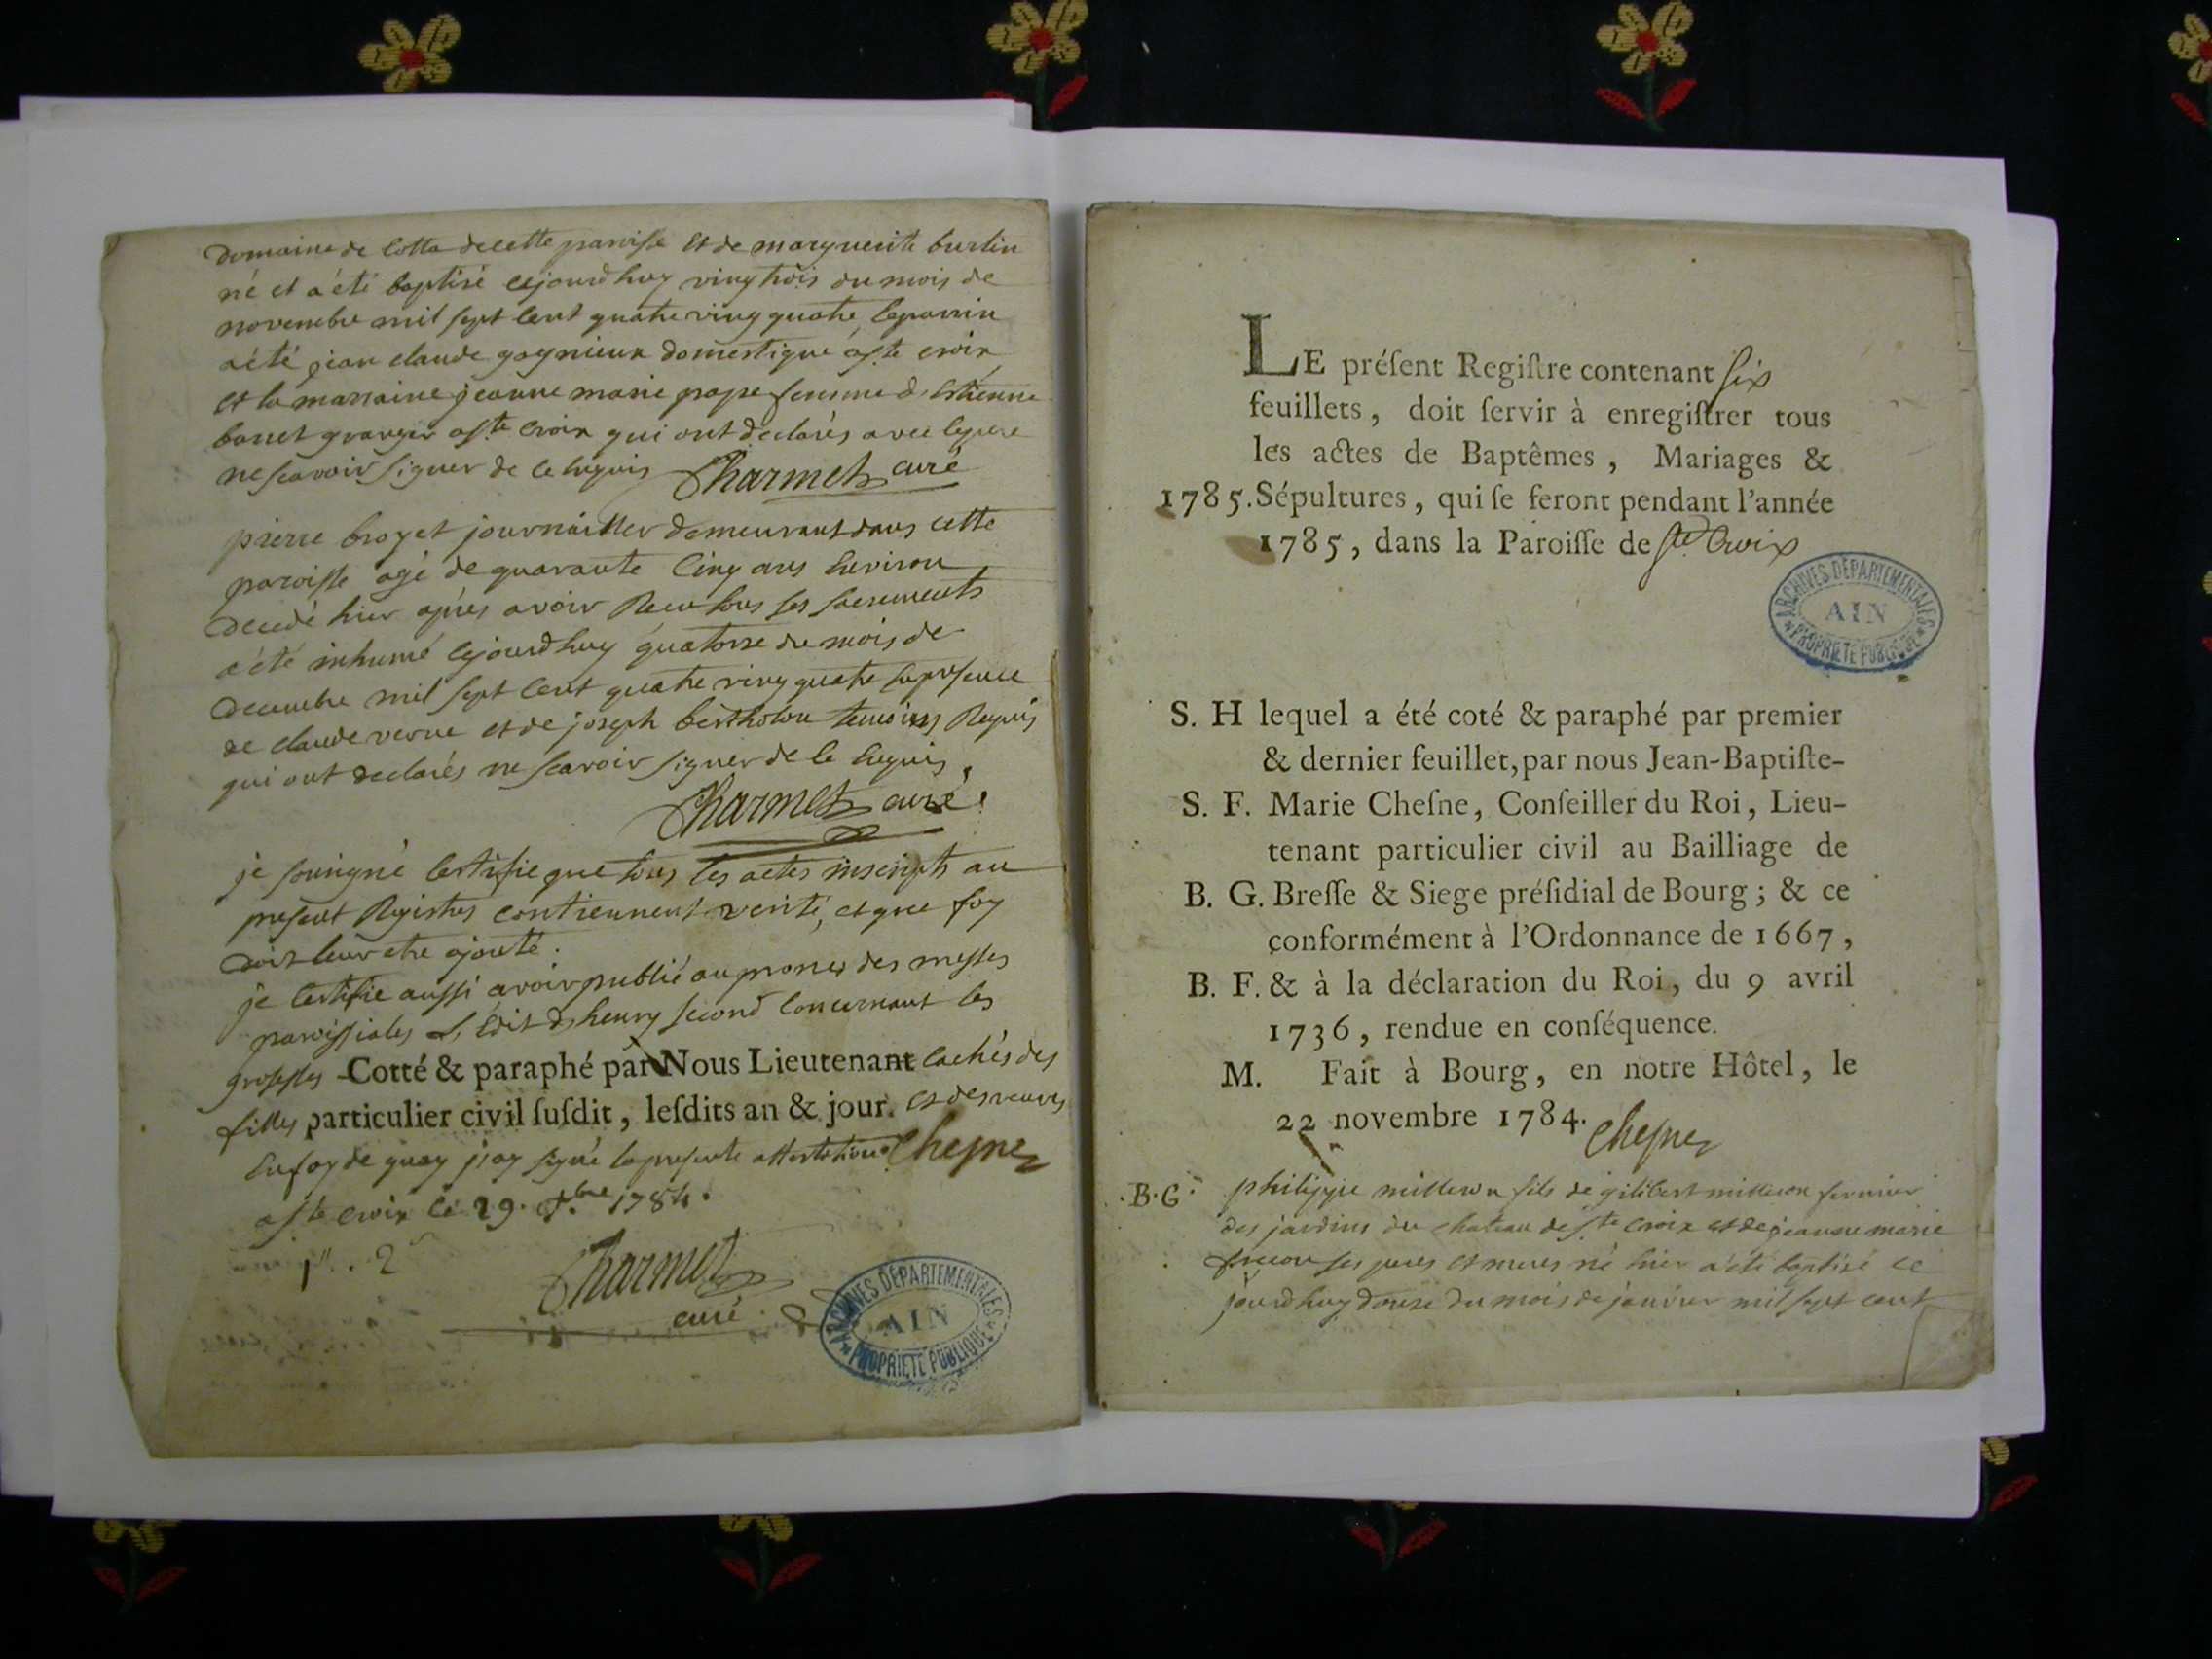 Domaine de Cotta de cette paroisse et de marguerite burlin
né et a été baptisé cejourdhuy vingtrois du mois de
novembre mil sept cent quatre ving quatre, le parrin
a été jean claude gognieux domestique a ste croix
et la marraine jeanne marie pape femme d'estienne
bonet granger a ste croix qui ont declarés avec le pere
ne scavoir signer de ce enquis Charmet curé
pierre broyet journailler demeurant dans cette
paroisse agé de quarante cinq ans environ
decedé hier apres avoir Recu tous ses sacrements
a été inhumé cejourdhuy quatorse du mois de
decembre mil sept cent quatre ving quatre en presence
de claude verne et de joseph bertholon temoins Requis
qui ont declarés ne scavoir signer de ce enquis,
Charmet curé
je souigné certifie que tous les actes inscripts au
present Registres contiennent verité, et que foy
doit leur etre ajouté.
je certifie aussi avoir publié au prones des messes
paroissiales L'Edit d'henry second concernant les
grossesses Cotté & paraphé par Nous Lieutenant cachés des
filles particulier civil ſuſdit, leſdits an & jour. et des veuves
En foy de quoy j'ay signé la presente attestation Chesne
a ste croix le 29. Xbre 1784.
Charmet
curé
ARCHIVES DÉPARTEMENTALES
AIN
PROPRIÉTÉ PUBLIQUE
LE préſent Regiſtre contenant six
feuillets, doit ſervir à enregiſtrer tous
les actes de Baptêmes, Mariages &
1785. Sépultures, qui ſe feront pendant l'année
1785, dans la Paroiſſe de Ste Croix
ARCHIVES DÉPARTEMENTALES
AIN
PROPRIÉTÉ PUBLIQUE
S. H lequel a été coté & paraphé par premier
& dernier feuillet, par nous Jean-Baptiſte-
S. F. Marie Cheſne, Conſeiller du Roi, Lieu-
tenant particulier civil au Bailliage de
B. G. Breſſe & Siege préſidial de Bourg ; & ce
conformément à l'Ordonnance de 1667,
B. F. & à la déclaration du Roi, du 9 avril
1736, rendue en conſéquence.
M. Fait à Bourg, en notre Hôtel, le
22 novembre 1784.
Chesne
B. G. philippe milleron fils de gilibert milleron fermier
des jardins du chateau de Ste Croix et de jeanne marie
ses peres et meres né hier a été baptisé ce
jourdhuy douse du mois de janvier mil sept cent